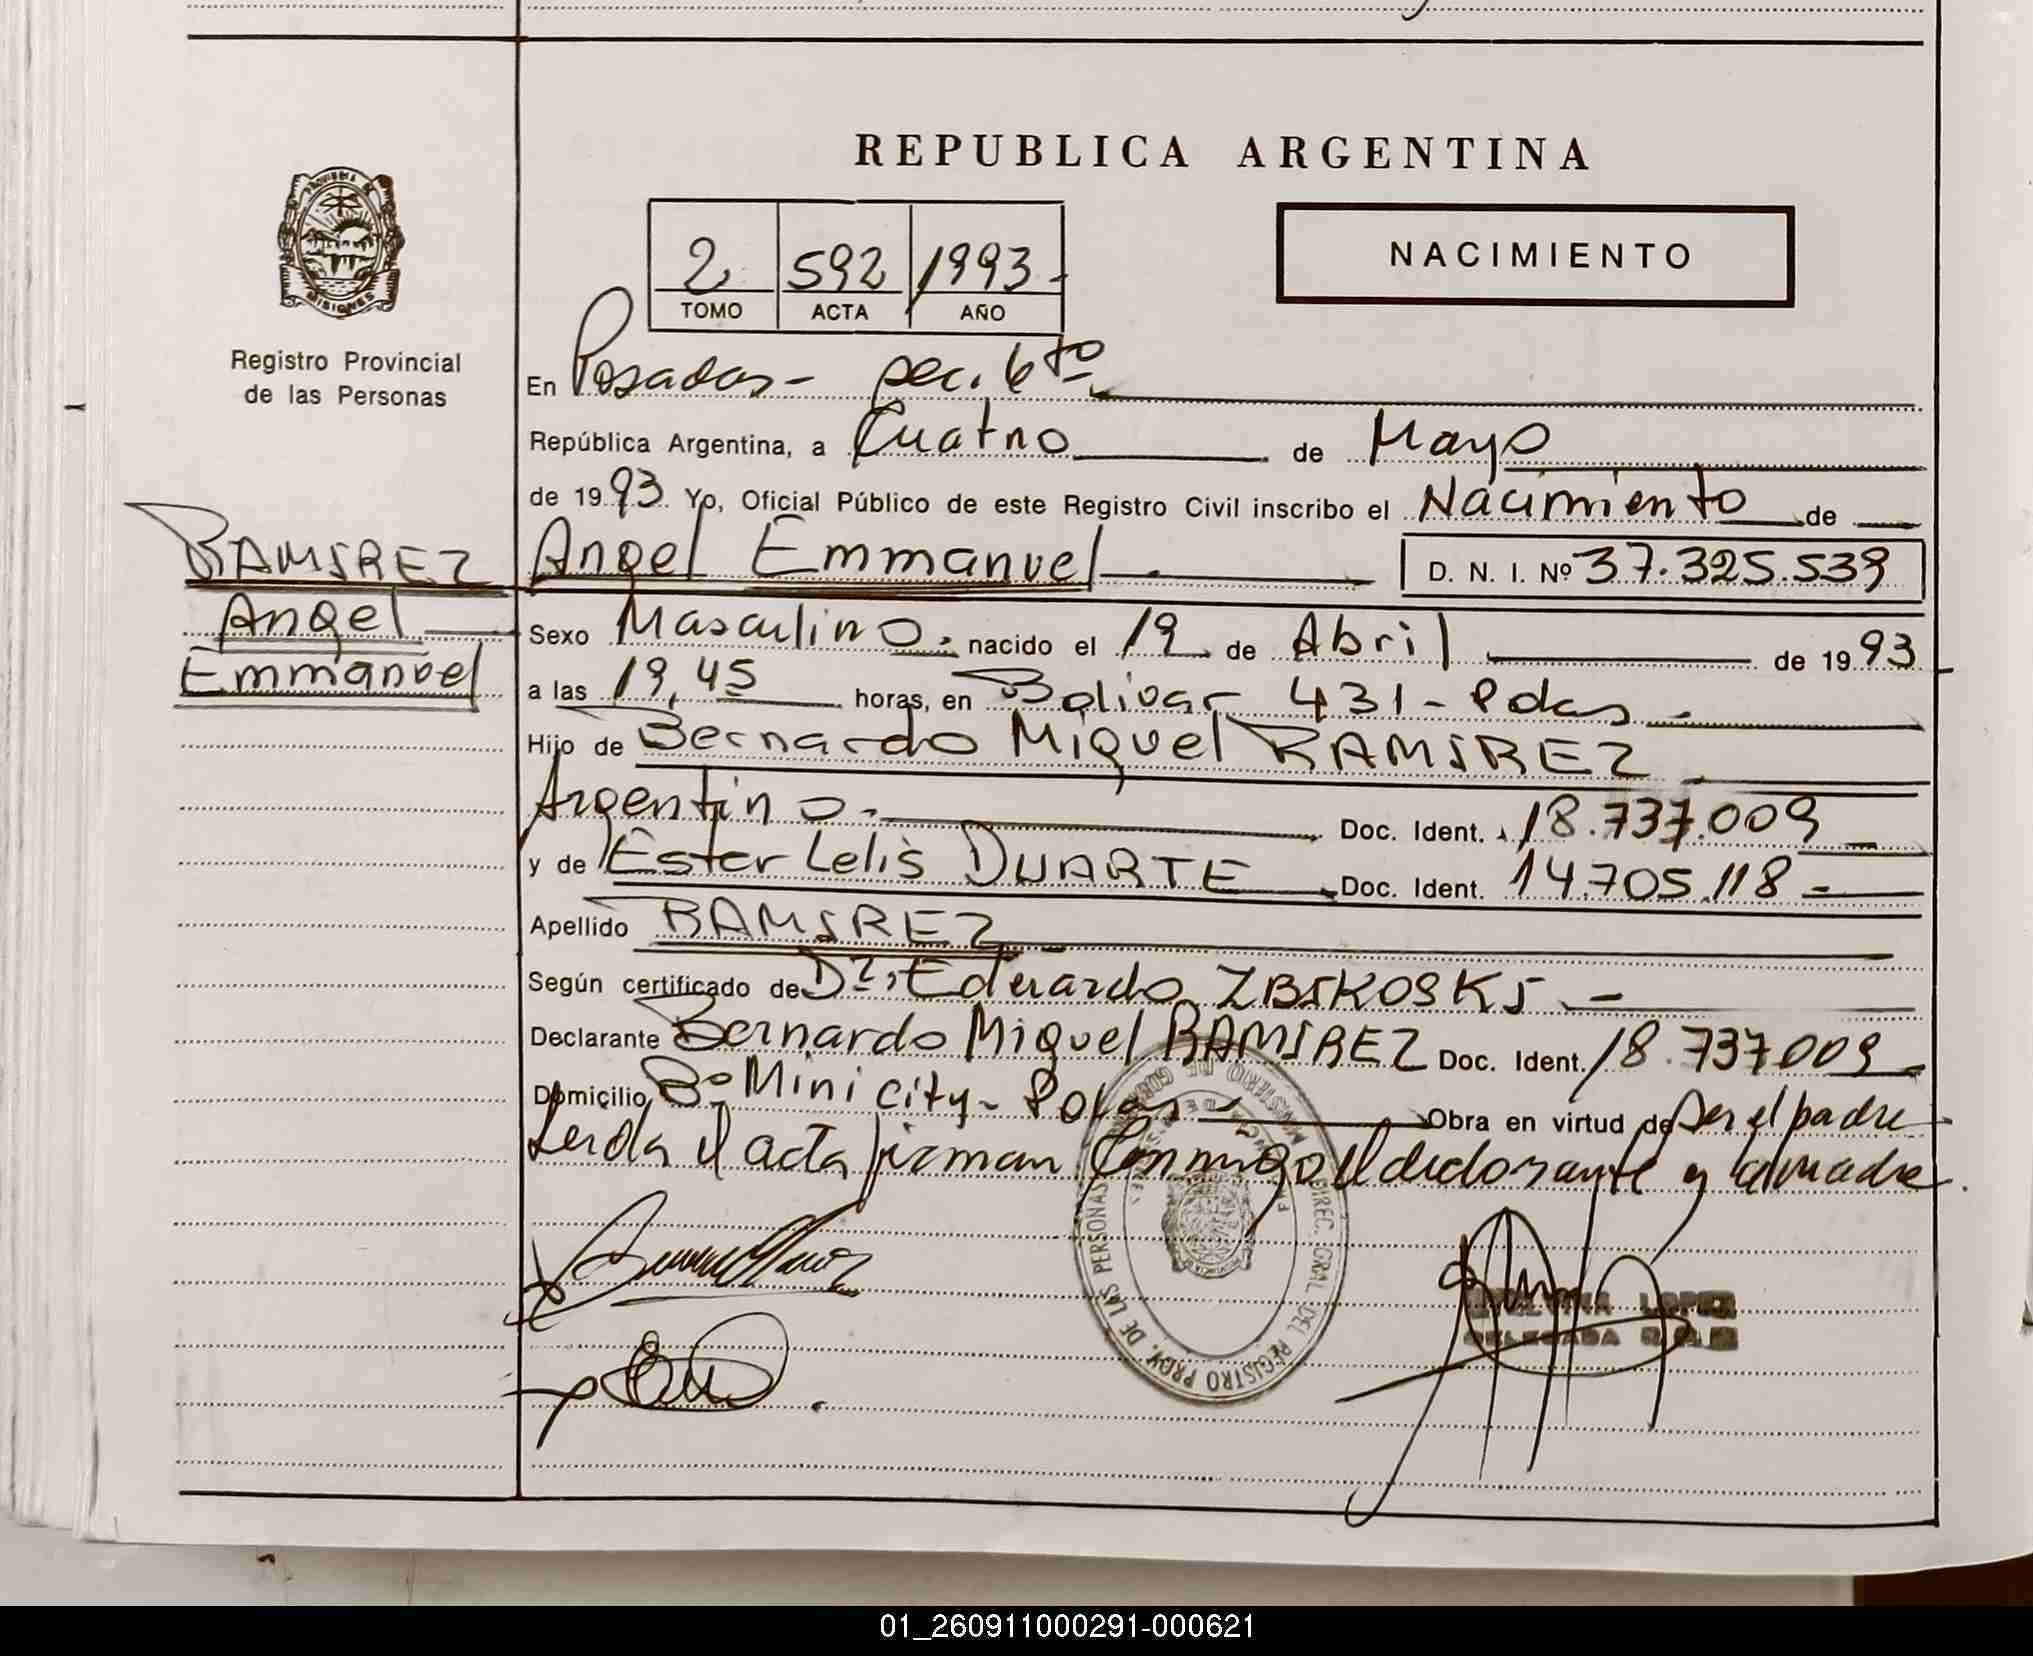 REPUBLICA ARGENTINA
NACIMIENTO
2 592 1993-
TOMO ACTA AÑO
PROVINCIA DE
MISIONES
Registro Provincial
de las Personas
En Posadas- sec. 6to
República Argentina, a Cuatro de Mayo
de 1993 Yo, Oficial Público de este Registro Civil inscribo el Nacimiento de
RAMIREZ
Angel
Emmanuel
Angel Emmanuel D. N. I. Nº 37.325.539
Sexo Masculino. nacido el 19 de Abril de 1993
a las 19,45 horas, en Bolivar 431- Pdas -
Hijo de Bernardo Miguel RAMIREZ
Argentino.- Doc. Ident. 18.737.009
y de Ester Lelis DUARTE Doc. Ident. 14.705.118-
Apellido RAMIREZ
Según certificado de Dr. Eduardo ZBIKOSKI -
Declarante Bernardo Miguel RAMIREZ Doc. Ident. 18.737009
Domicilio Bº Mini city- Pdas- Obra en virtud de ser el padre
Leida el acta firman conmigo el declarante y la madre.
DIREC. GRAL. DEL REGISTRO PROV. DE LAS PERSONAS
MINISTERIO DE
LOPEZ
DELEGADA
01_260911000291-000621